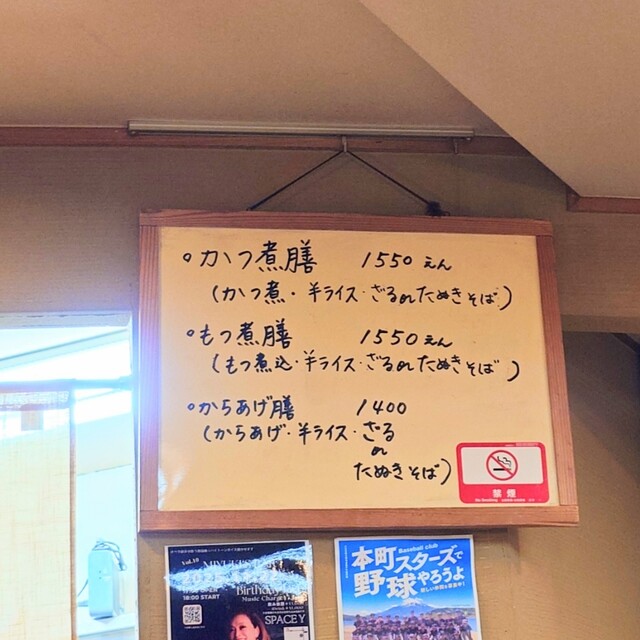 ○かつ煮膳 1550えん
(かつ煮・半ライス・ざるorたぬきそば)
○もつ煮膳 1550えん
(もつ煮込・半ライス・ざるorたぬきそば)
○からあげ膳 1400
(からあげ・半ライス・ざる
or
たぬきそば)
禁煙
Vol.10
18:00 START
Birthday
Music Charge
SPACE Y
Baseball club
本町スターズで
野球やろうよ